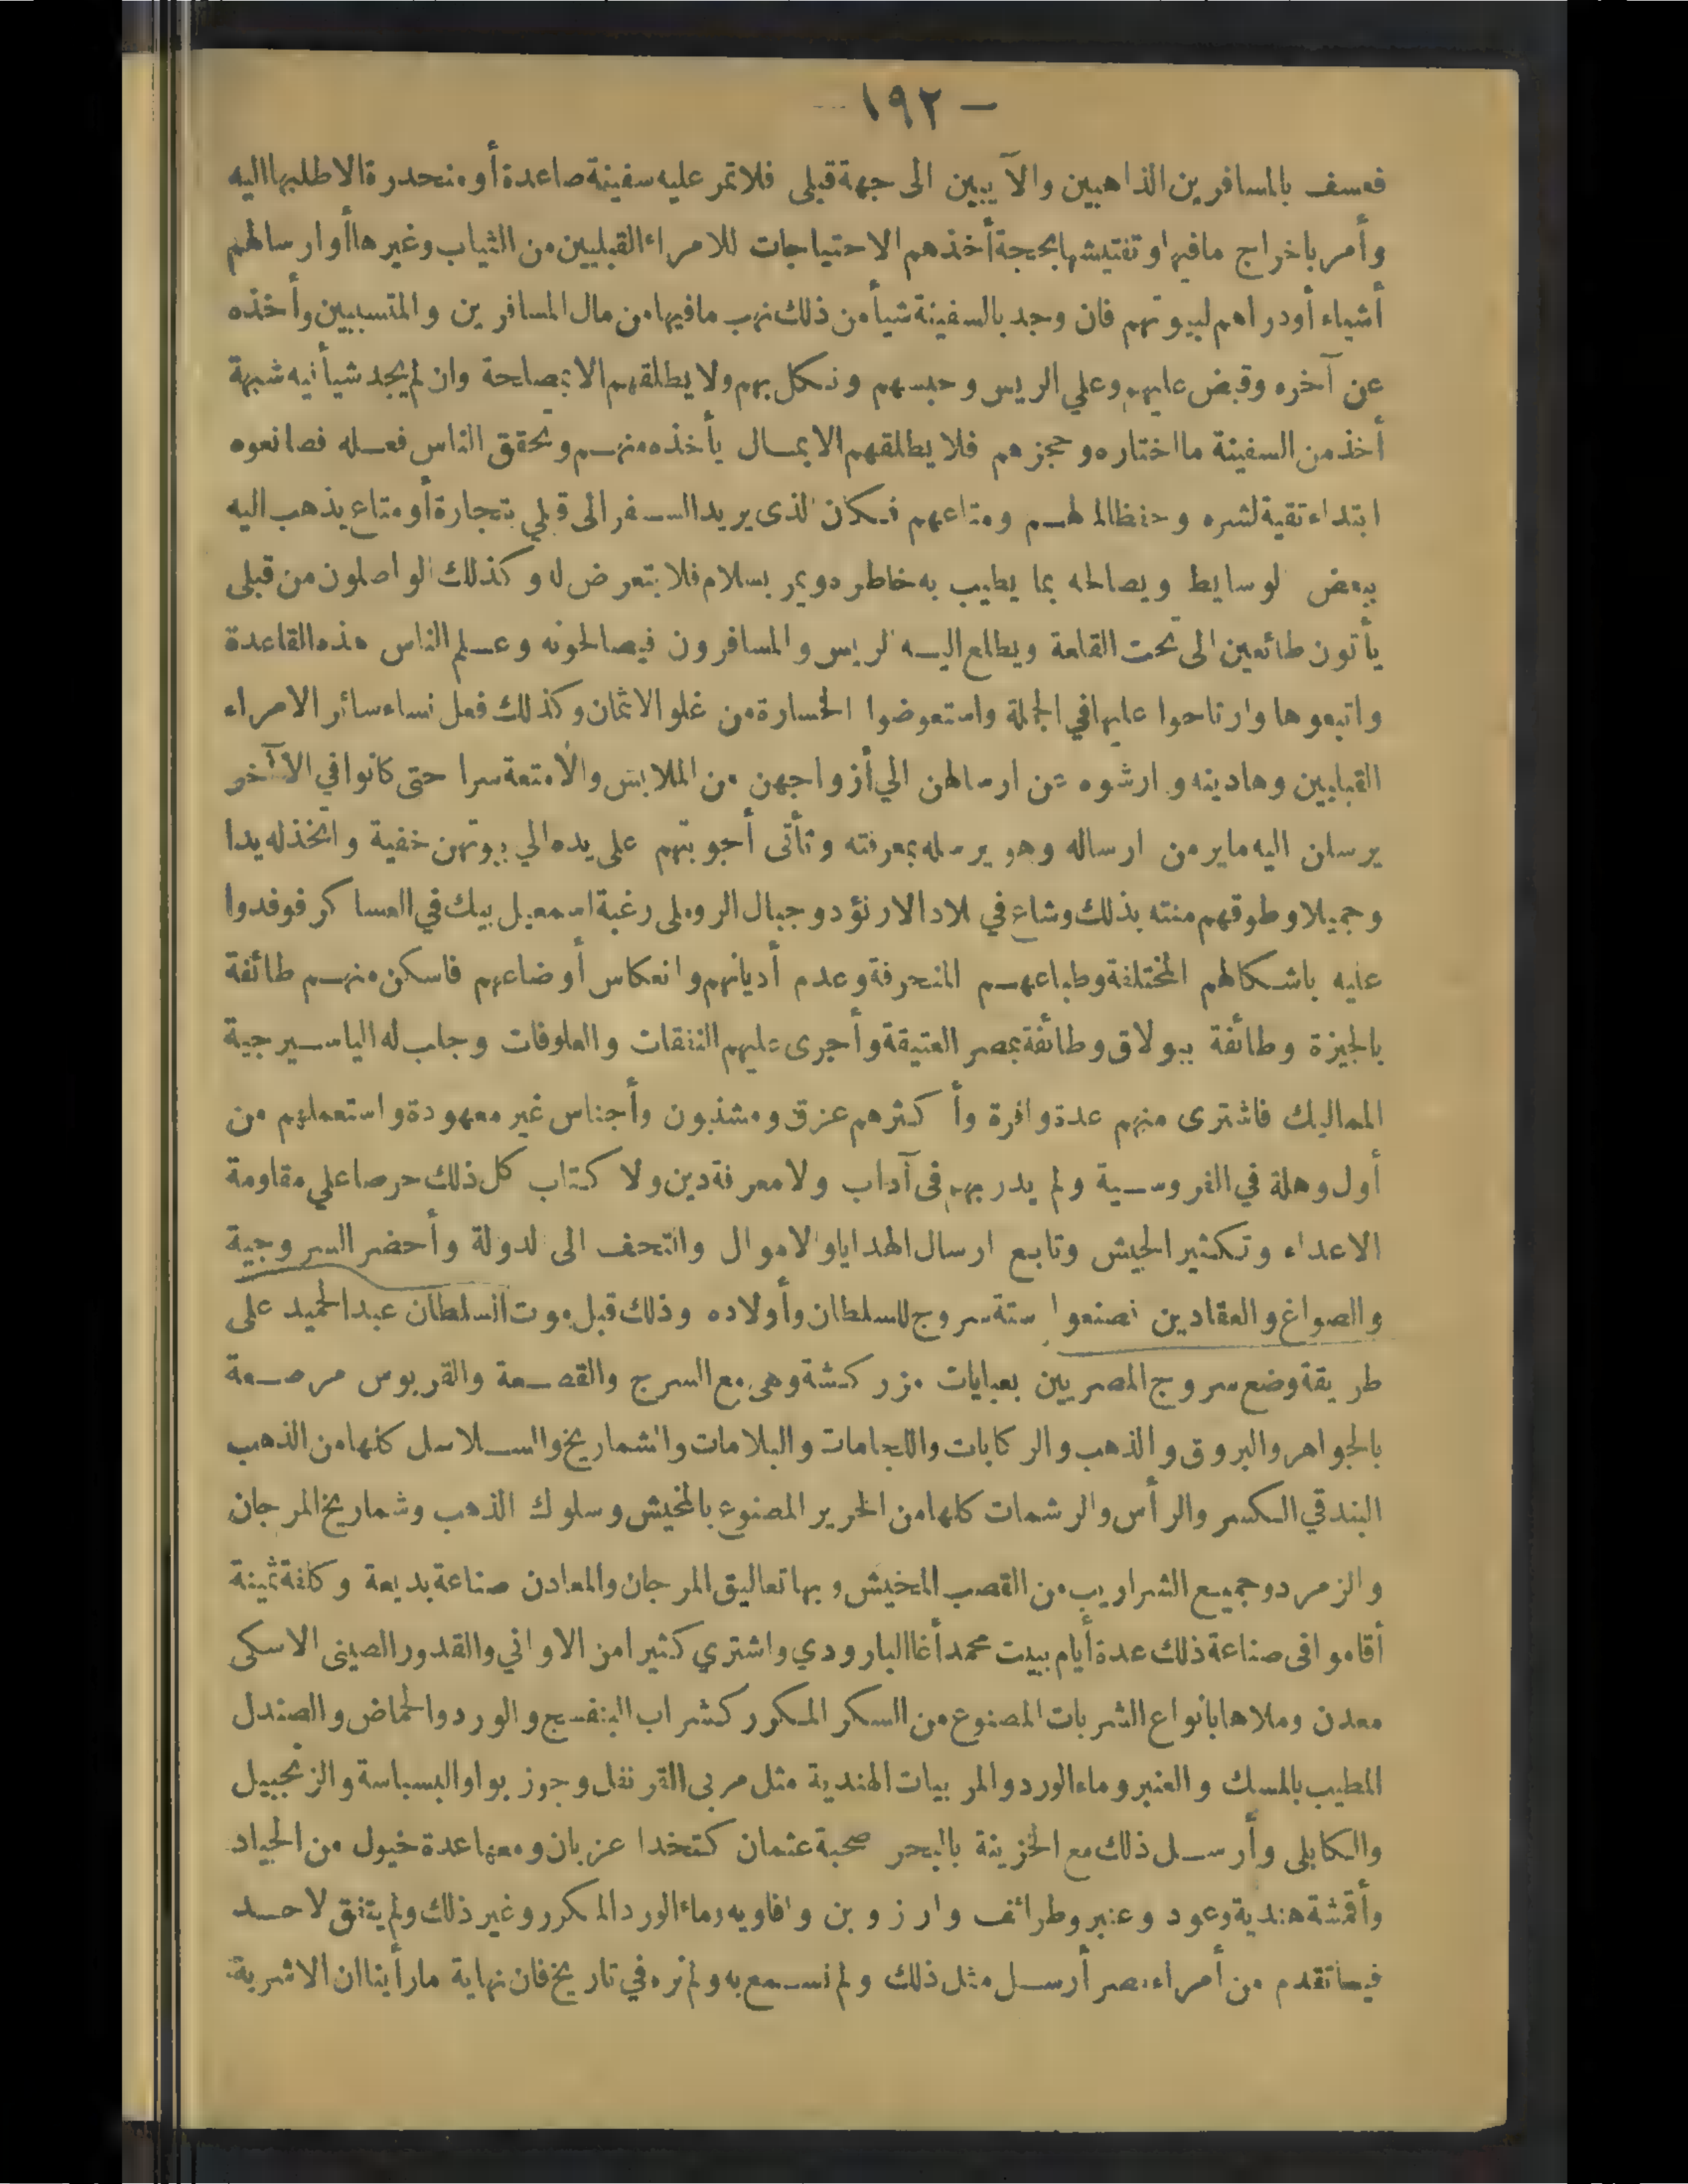 — ١٩٢ —
فعسف بالمسافرين الذاهبين والآيبين الى جهة قبلى فلا تمر عليه سفينة صاعدة أو منحدرة الا طلبها اليه
وأمر باخراج ما فيها وتفتيشها بحجة أخذهم الاحتياجات للامراء القبليين من الثياب وغيرها أو ارسالهم
أشياء أو دراهم لبيوتهم فان وجد بالسفينة شيأ من ذلك نهب ما فيها من مال المسافرين والمتسببين وأخذه
عن آخره وقبض عليهم وعلي الريس وحبسهم ونكل بهم ولا يطلقهم الا بمصاحلة وان لم يجد شيأ فيه شبهة
أخذ من السفينة ما اختاره وحجزهم فلا يطلقهم الا بمال يأخذه منهم وتحقق الناس فعله فصانعوه
ابتداء تقية لشره وحفظا لمالهم ومتاعهم فكان الذى يريد السفر الى قبلي بتجارة أو متاع يذهب اليه
ببعض الوسايط ويصالحه بما يطيب به خاطره ويمر بسلام فلا يتعرض له وكذلك الواصلون من قبلى
يأتون طائعين الى تحت القلعة ويطلع اليه الريس والمسافرون فيصالحونه وعلم الناس هذه القاعدة
واتبعوها وارتاحوا عليها في الجملة واستعوضوا الخسارة من غلو الاثمان وكذلك فعل نساء سائر الامراء
القبليين وهادينه وارشوه عن ارسالهن الي أزواجهن من الملابس والأمتعة سرا حتى كانوا في الآخر
يرسلن اليه ما يرمن ارساله وهو يرسله بمعرفته وتأتى أجوبتهم على يده الي بيوتهن خفية واتخذ له يدا
وجميلا وطوقهم منته بذلك وشاع في بلاد الارنؤد وجبال الروملى رغبة اسمعيل بيك في العساكر فوفدوا
عليه باشكالهم المختلفة وطباعهم المنحرفة وعدم أديانهم وانعكاس أوضاعهم فاسكن منهم طائفة
بالجيزة وطائفة ببولاق وطائفة بمصر العتيقة وأجرى عليهم النفقات والعلوفات وجلب له الياسيرجية
المماليك فاشترى منهم عدة وافرة وأكثرهم عزق ومشنبون وأجناس غير معهودة واستعملهم من
أول وهلة في الفروسية ولم يدربهم فى آداب ولا معرفة دين ولا كتاب كل ذلك حرصا علي مقاومة
الاعداء وتكثير الجيش وتابع ارسال الهدايا والاموال والتحف الى الدولة وأحضر السروجية
والصواغ والعقادين فصنعوا ستة سروج للسلطان وأولاده وذلك قبل موت السلطان عبد الحميد على
طريقة وضع سروج المصريين بعبايات مزركشة وهى مع السرج والقصعة والقربوس مرصعة
بالجواهر والبروق والذهب والركابات واللجامات والبلامات والشماريخ والسلاسل كلها من الذهب
البندقي الكسر والرأس والرشمات كلها من الحرير المصنوع بالمخيش وسلوك الذهب وشماريخ المرجان
والزمرد وجميع الشراريب من القصب المخيش وبها تعاليق المرجان والمعادن صناعة بديعة وكلفة ثمينة
أقاموا فى صناعة ذلك عدة أيام ببيت محمد أغا البارودي واشتري كثيرا من الاواني والقدور الصينى الاسكى
معدن وملاها بأنواع الشربات المصنوع من السكر المكرر كشراب البنفسج والورد والحماض والصندل
المطيب بالمسك والعنبر وماء الورد والمربيات الهندية مثل مربى القرنفل وجوز بوا والبسباسة والزنجبيل
والكابلى وأرسل ذلك مع الخزينة بالبحر صحبة عثمان كتخدا عزبان ومعها عدة خيول من الجياد
وأقمشة هندية وعود وعنبر وطرائف وارز وبن وافاويه وماء الورد المكرر وغير ذلك ولم يتفق لاحد
فيما تقدم من أمراء مصر أرسل مثل ذلك ولم نسمع به ولم نره في تاريخ فان نهاية ما رأينا ان الاشربة